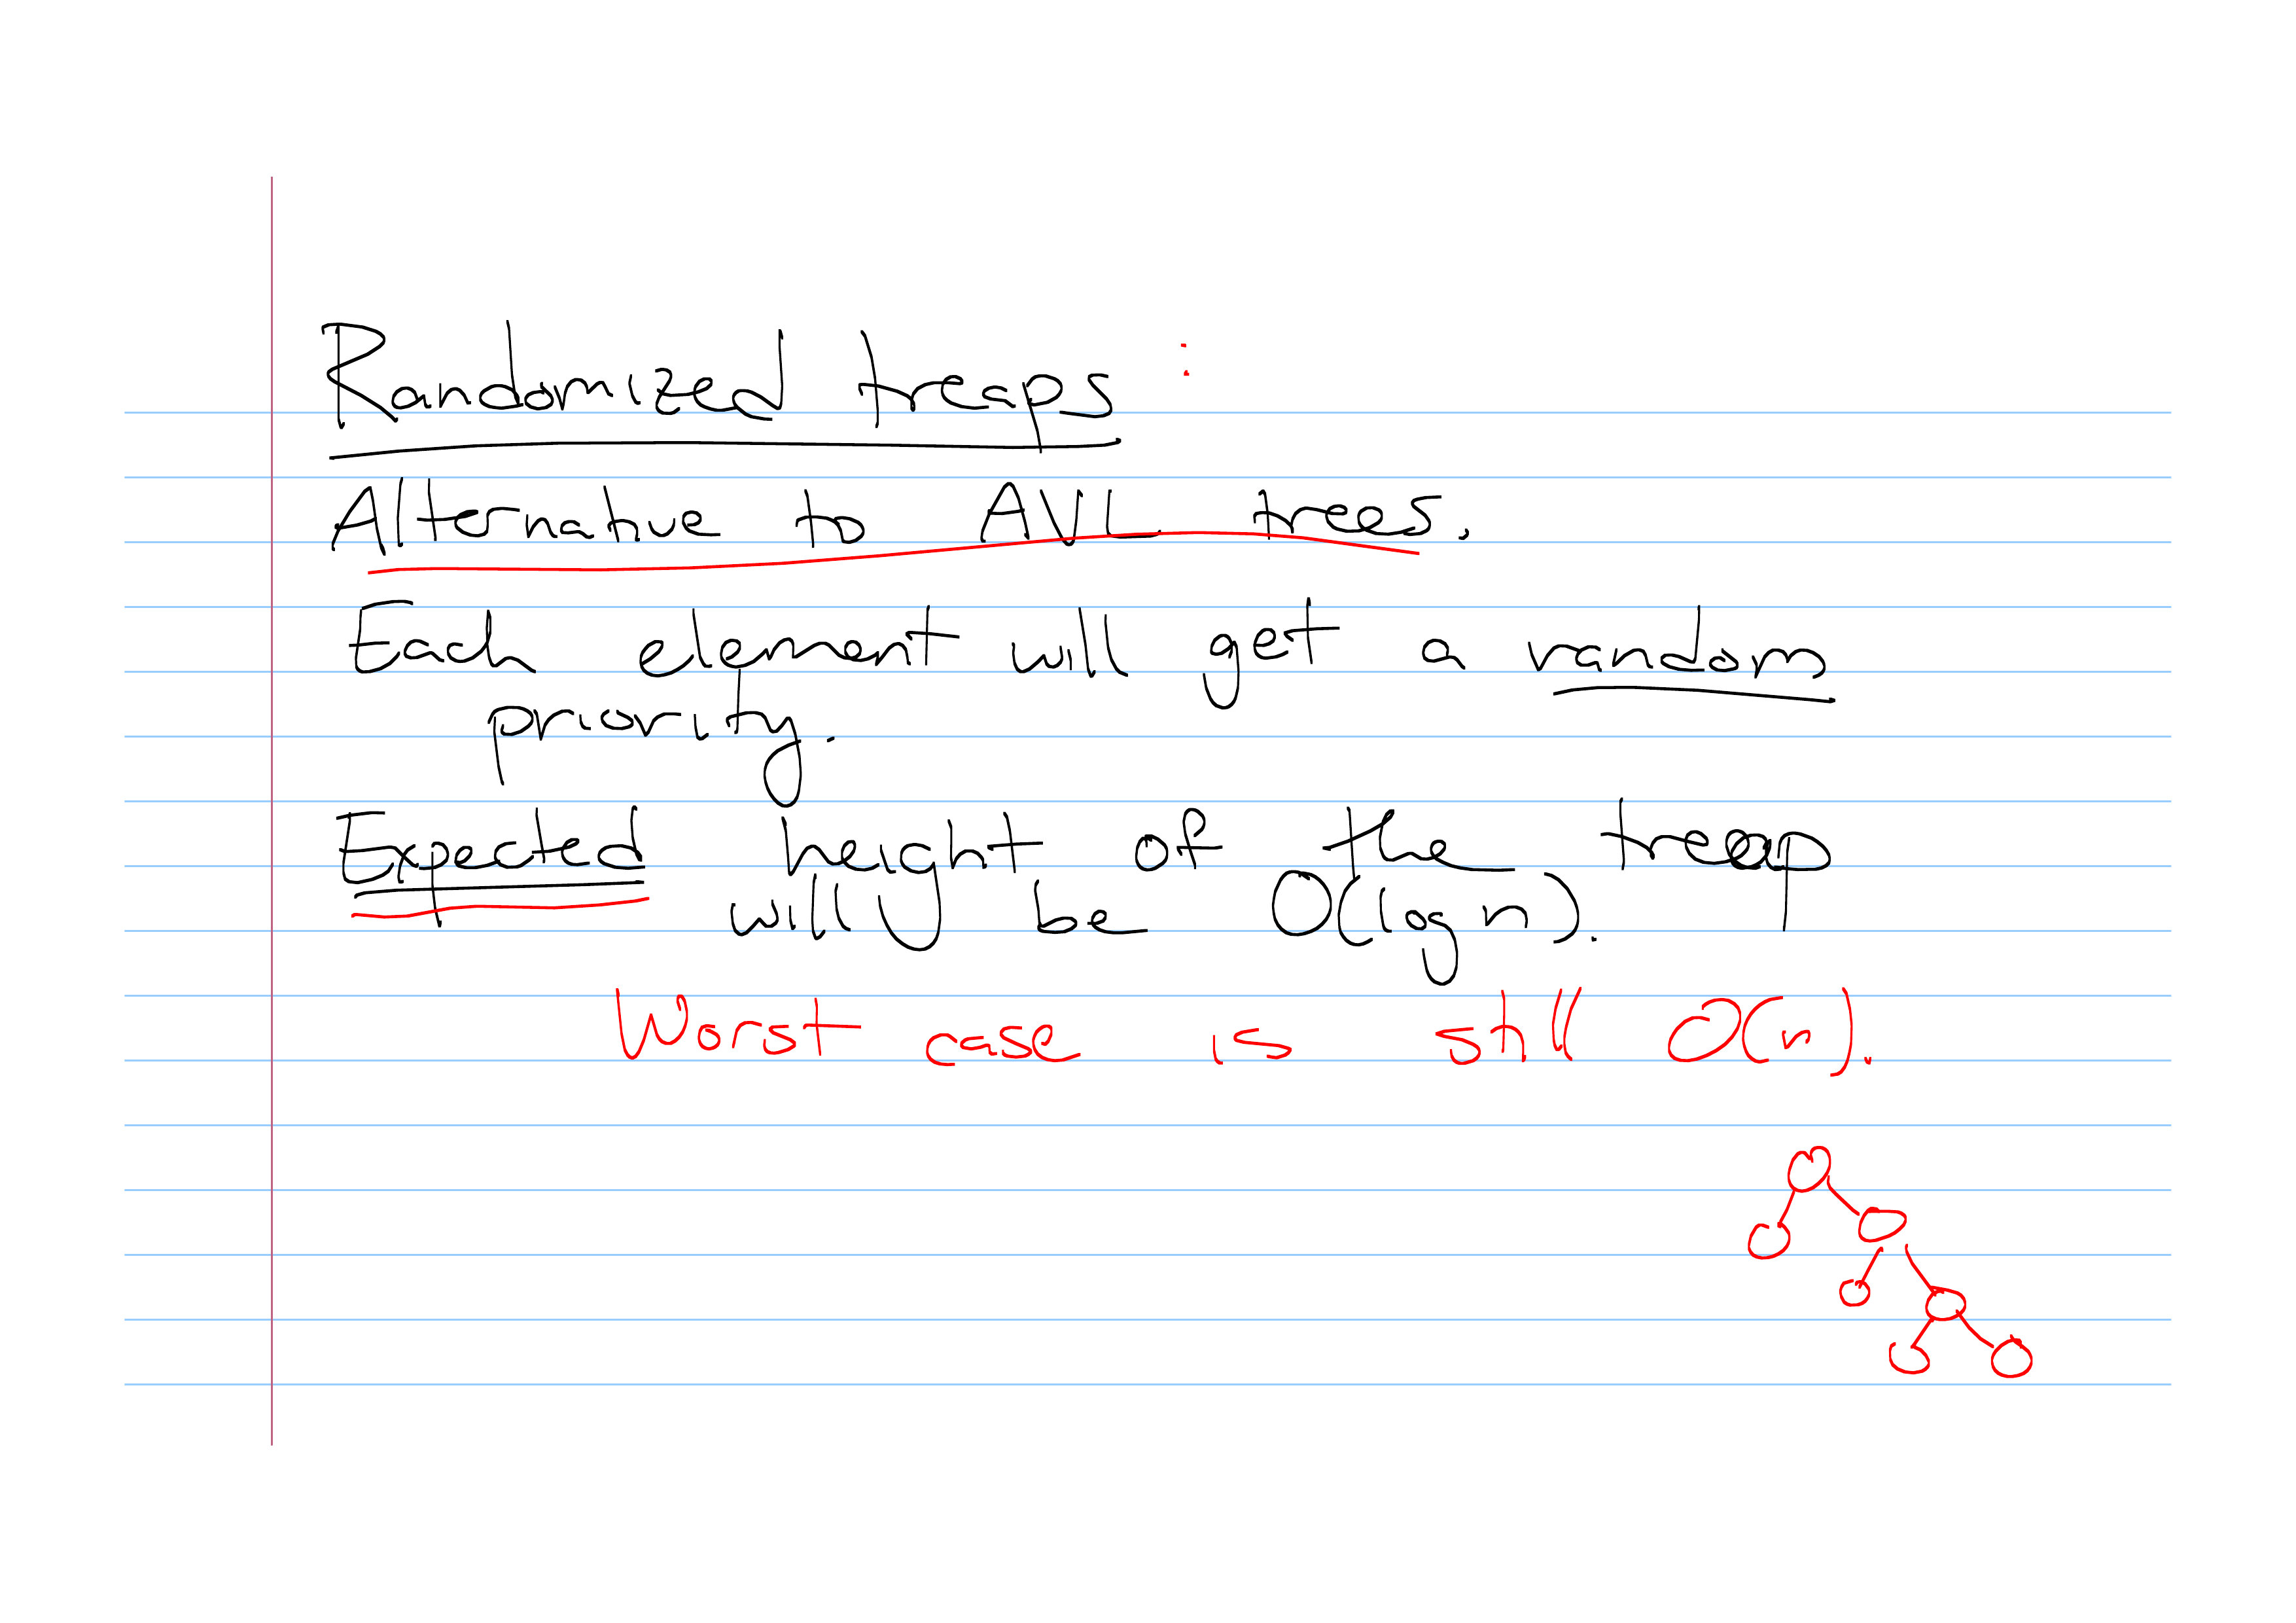 Randomized treaps :
Alternative to AVL trees.
Each element will get a random
priority.
Expected height of the treap
will be O(lg n).
Worst case is still O(n).